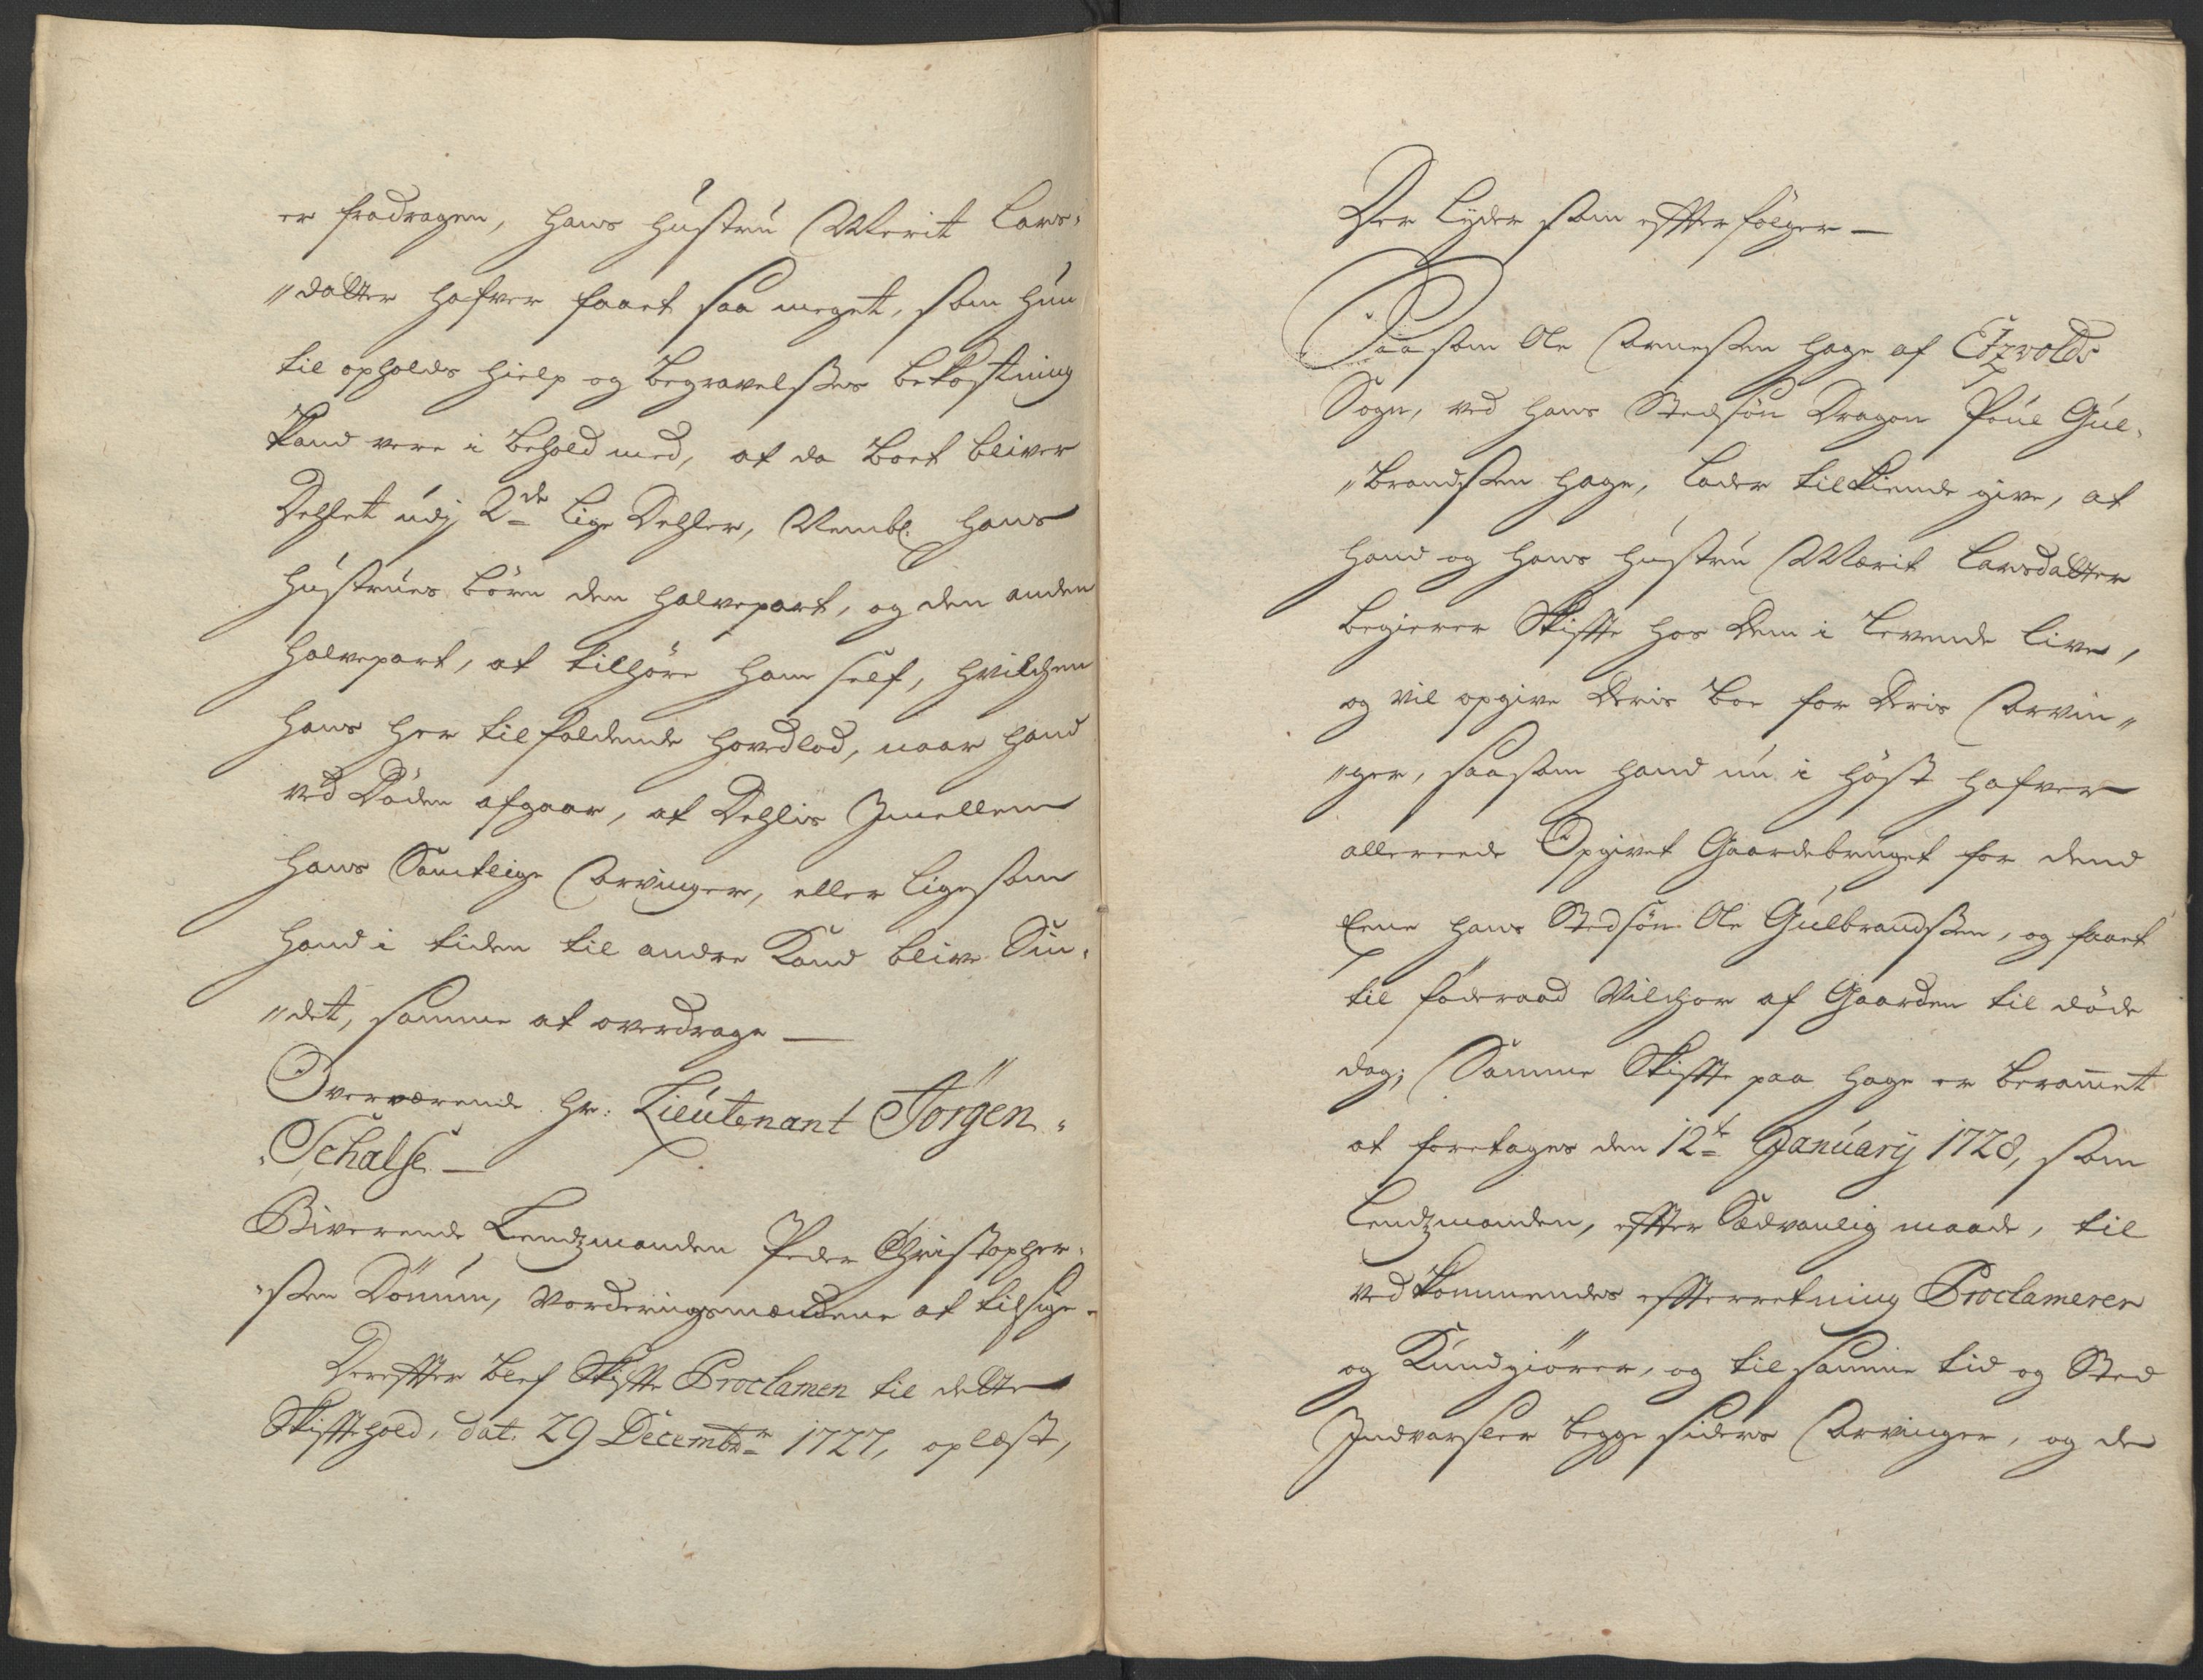 er fradragen, hans hustrú Marit Lars-
„datter hafver faaet saa meget, som hun
til opholds hielp og begravelsses bekostning
kand vere i behold med, at da boet bliver
Dehlet udj 2de lige Dehler, Nembl. hans
hústrúes börn den halvepart, og den anden
halvepart, at tilhöre ham self, hvilchen
hans her tilfaldende hovedlod, naar hand
ved Döden afgaar, at Dehlis Imellem
hans Samtlige Arvinger, eller ligesom
hand i tiden til andre Kand blive Sin-
„det, samme at overdrage —
Overværende Hr: Lieútenant Jörgen
Schalse —
Biverende Lendzmanden Peder Christopher-
„ssen Dönúm, Vorderingsmændene at tilsige.
Derefter blef Skifte Proclamen til dette
Skiftehold, dat: 29 Decembr 1727, oplæst,
Der lyder som efterfölger —
Saasom Ole Arnessen Hage af Etzvolds
Sogn, ved hans Stedsön Dragon Poúl Gúl-
„brandssen Hage, lader tilkiende give, at
hand og hans hústrú Marit Larsdatter
begierer Skifte hos dem i levende live,
og vil opgive deris boe for deris Arvin„
„ger, saasom hand nú i höst hafver
allereede Opgivet Gaardebrúget for dend
Eene hans Stedsön Ole Gúlbrandssen, og faaet
til föderaad Vilchor af Gaarden til döde
dag; Samme Skifte paa Hage er beramet
at foretages den 12te Janúarij 1728, som
Lendzmanden, efter Sædvanlig maade, til
vedkommendes efterretning Proclamerer
og Kúndgiörer, og til samme tid og Sted
Indvarsler begge siders Arvinger, og de